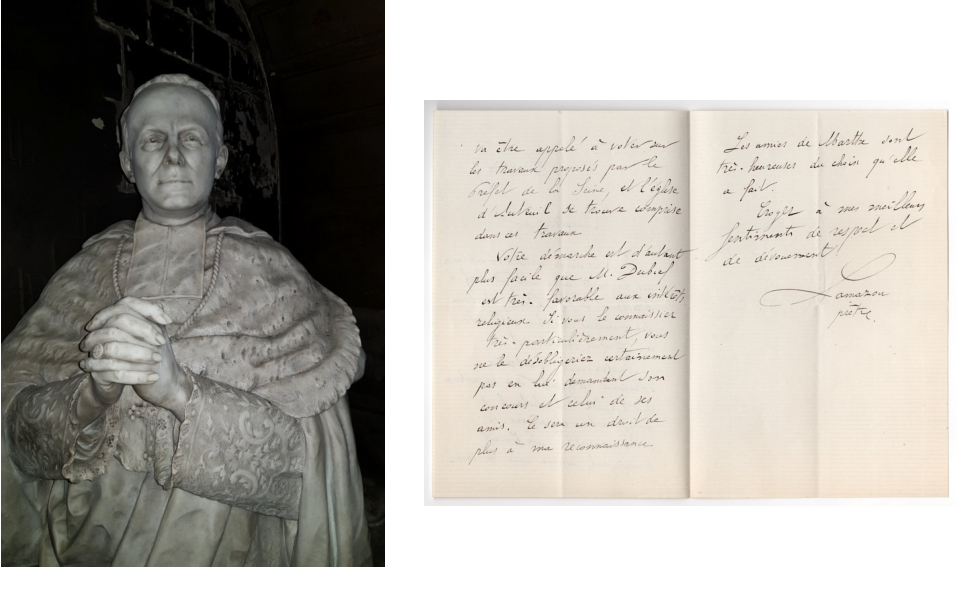 va être appelé à voter sur
les travaux proposés par le
Préfet de la Seine, et l'église
d'Auteuil se trouve comprise
dans ces travaux
Votre démarche est d'autant
plus facile que M. Dubief
est très-favorable aux intérêts
religieux. Si vous le connaissiez
très-particulièrement, vous
ne le désobligeriez certainement
pas en lui demandant son
concours et celui de ses
amis. Ce sera un droit de
plus à ma reconnaissance
Les amies de Marthe sont
très-heureuses du choix qu'elle
a fait.
Croyez à mes meilleurs
sentiments de respect et
de dévouement!
Lamazou
prêtre.